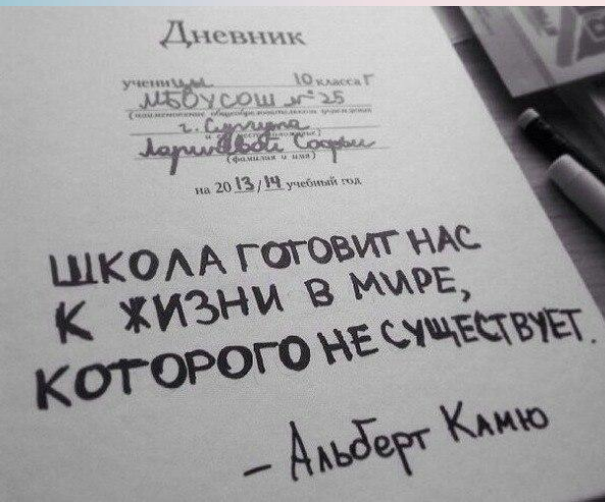 Дневник
учениЦЫ 10 класса Г
МБОУСОШ №25
(наименование общеобразовательного учреждения
г. Сургута
и его местоположение)
Лариновой Софьи
(фамилия и имя)
на 2013/14 учебный год
ШКОЛА ГОТОВИТ НАС
К ЖИЗНИ В МИРЕ,
КОТОРОГО НЕ СУЩЕСТВУЕТ.
– Альберт Камю